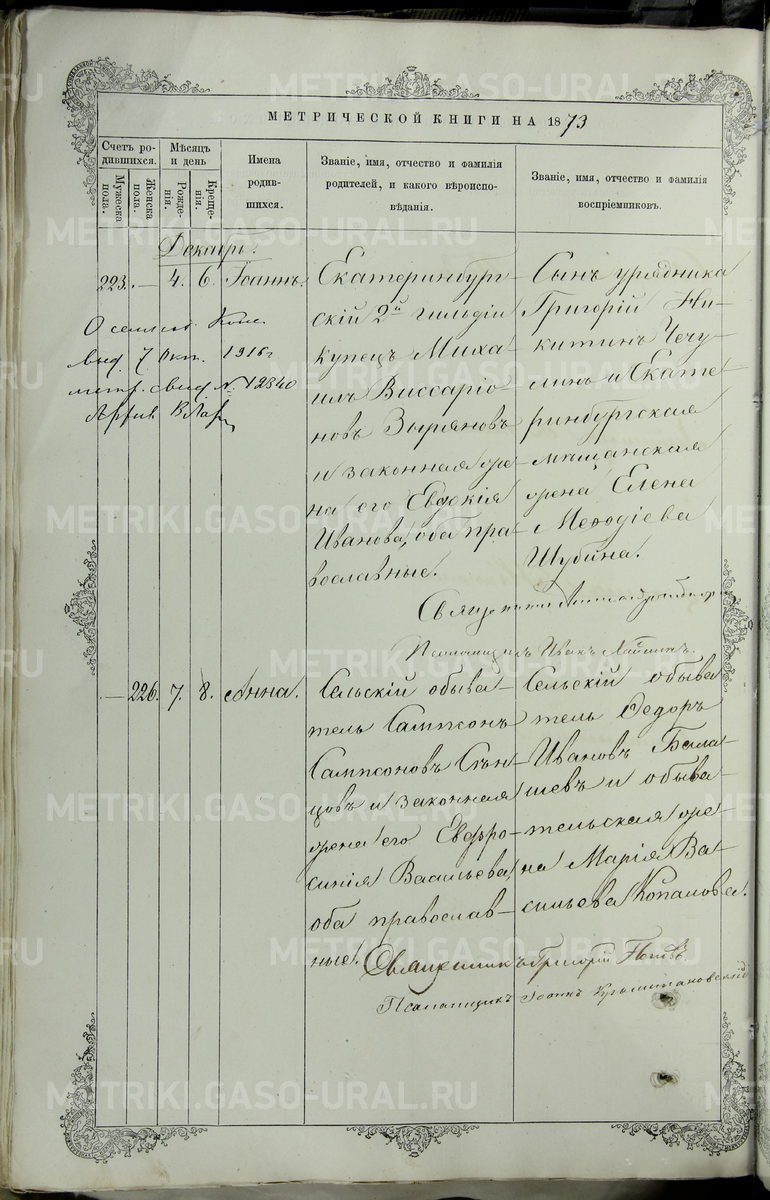 МЕТРИЧЕСКОЙ КНИГИ НА 1873
Счетъ ро-
дившихся.
Мужеска
пола.
Женска
пола.
Мѣсяцъ
и день
Рожде-
нія.
Креще-
нія.
Имена
родив-
шихся.
Званіе, имя, отчество и фамилія
родителей, и какого вѣроиспо-
вѣданія.
Званіе, имя, отчество и фамилія
воспріемниковъ.
Декабрь.
223. — 4. 6. Іоаннъ.
Екатеринбург-
скій 2й гильдіи
купецъ Миха-
илъ Виссаріо-
новъ Зыряновъ
и законная же-
на его Евдокія
Иванова, оба пра-
вославные.
Сынъ урядника
Григорій Ни-
китинъ Чечу-
линъ и Екате-
ринбургская
мѣщанская
жена Елена
Меѳодіева
Шубина.
О
выд. 7 Окт. 1916 г
метр. свид № 12340
Священникъ
Псаломщикъ Иванъ
— 226. 7. 8. Анна.
Сельскій обыва-
тель Сампсонъ
Сампсоновъ Скѣн-
цовъ и законная
жена его Евфро-
синія Васильева,
оба православ-
ные.
Сельскій обыва-
тель Ѳедоръ
Ивановъ Бала-
шевъ и обыва-
тельская же-
на Марія Ва-
сильева Копалова.
Священникъ Григорій Поповъ
Псаломщикъ Іоаннъ
METRIKI.GASO-URAL.RU